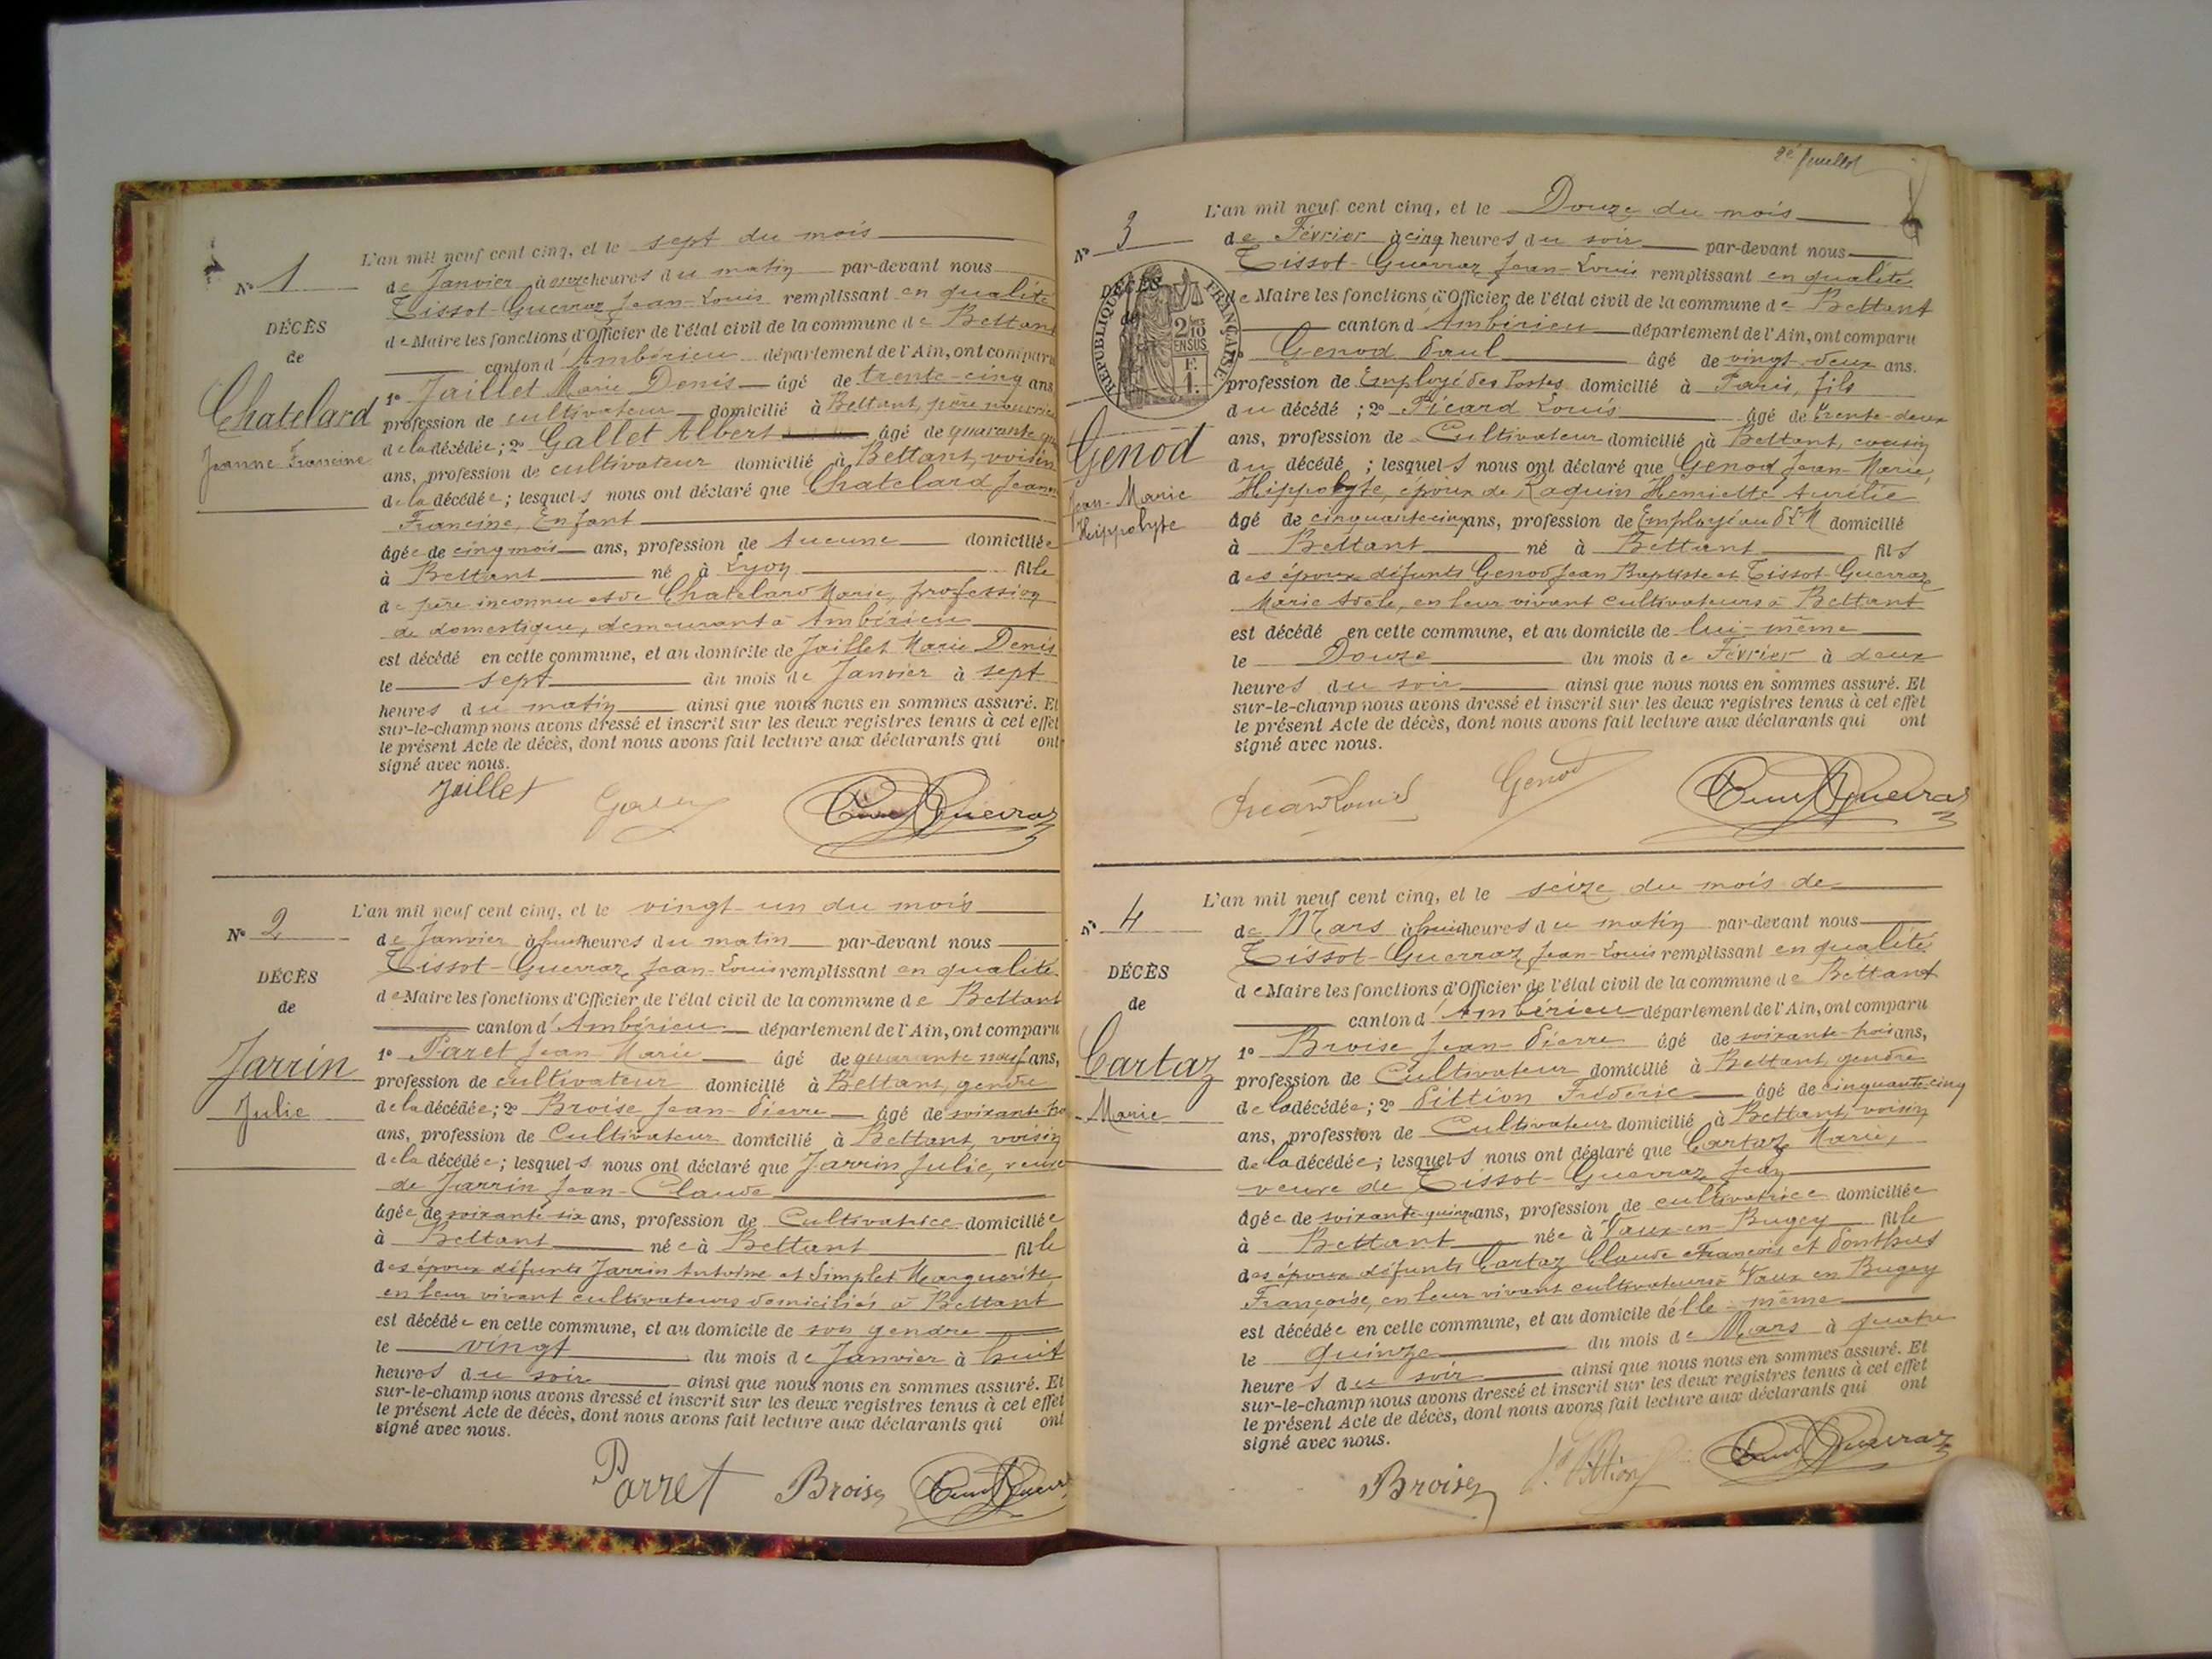 L'an mil neuf cent cinq, et le sept du mois
N° 1
de Janvier à onze heures du matin par-devant nous
Tissot-Guerraz Jean-Louis remplissant en qualité
DÉCÈS
de Maire les fonctions d'Officier de l'état civil de la commune de Bettant
de
canton d'Ambérieu département de l'Ain, ont comparu
Chatelard
Jeanne Francine
1° Jaillet Marie Denis âgé de trente-cinq ans
profession de cultivateur domicilié à Bettant, père nourricier
de la décédée; 2° Gallet Albert âgé de quarante
ans, profession de cultivateur domicilié à Bettant, voisin
de la décédée; lesquels nous ont déclaré que Chatelard Jeanne
Francine, Enfant
âgée de cinq mois ans, profession de Aucune domiciliée
à Bettant né à Lyon fille
de père inconnu et de Chatelard Marie, profession
de domestique, demeurant à Ambérieu
est décédé en cette commune, et au domicile de Jaillet Marie Denis
le sept du mois de Janvier à sept
heures du matin ainsi que nous nous en sommes assuré. Et
sur-le-champ nous avons dressé et inscrit sur les deux registres tenus à cet effet
le présent Acte de décès, dont nous avons fait lecture aux déclarants qui ont
signé avec nous.
Jaillet
L'an mil neuf cent cinq, et le vingt-un du mois
N° 2
de Janvier à huit heures du matin par-devant nous
Tissot-Guerraz Jean-Louis remplissant en qualité
DÉCÈS
de Maire les fonctions d'Officier de l'état civil de la commune de Bettant
de
canton d'Ambérieu département de l'Ain, ont comparu
Jarrin
Julie
1° Paret Jean-Marie âgé de quarante neuf ans,
profession de cultivateur domicilié à Bettant, gendre
de la décédée; 2° Broise Jean-Pierre âgé de soixante
ans, profession de Cultivateur domicilié à Bettant, voisin
de la décédée; lesquels nous ont déclaré que Jarrin Julie, veuve
de Jarrin Jean-Claude
âgée de soixante-six ans, profession de Cultivatrice domiciliée
à Bettant née à Bettant fille
des époux défunts Jarrin Antoine et Simplet Marguerite,
en leur vivant cultivateurs domiciliés à Bettant
est décédée en cette commune, et au domicile de son gendre
le vingt du mois de Janvier à huit
heures du soir ainsi que nous nous en sommes assuré. Et
sur-le-champ nous avons dressé et inscrit sur les deux registres tenus à cet effet
le présent Acte de décès, dont nous avons fait lecture aux déclarants qui ont
signé avec nous.
Parret Broise
2e feuillet
L'an mil neuf cent cinq, et le Douze du mois
N° 3
de Février à cinq heures du soir par-devant nous
Tissot-Guerraz Jean-Louis remplissant en qualité
DÉCÈS
de
RÉPUBLIQUE FRANÇAISE
de Maire les fonctions d'Officier de l'état civil de la commune de Bettant
canton d'Ambérieu département de l'Ain, ont comparu
Genod
Jean-Marie
Hippolyte
1° Genod Paul âgé de vingt-deux ans.
profession de Employé des Postes domicilié à Paris, fils
du décédé; 2° Picard Louis âgé de trente-deux
ans, profession de Cultivateur domicilié à Bettant, cousin
du décédé; lesquels nous ont déclaré que Genod Jean-Marie,
Hippolyte, époux de Raquin Henriette Aurélie
âgé de cinquante cinq ans, profession de Employé au P.L.M domicilié
à Bettant né à Bettant fils
des époux défunts Genod Jean Baptiste et Tissot-Guerraz
Marie Adèle, en leur vivant cultivateurs à Bettant
est décédé en cette commune, et au domicile de lui-même
le Douze du mois de Février à deux
heures du soir ainsi que nous nous en sommes assuré. Et
sur-le-champ nous avons dressé et inscrit sur les deux registres tenus à cet effet
le présent Acte de décès, dont nous avons fait lecture aux déclarants qui ont
signé avec nous.
Picard Louis Genod
L'an mil neuf cent cinq, et le seize du mois de
N° 4
de Mars à huit heures du matin par-devant nous
Tissot-Guerraz Jean-Louis remplissant en qualité
DÉCÈS
de Maire les fonctions d'Officier de l'état civil de la commune de Bettant
de
canton d'Ambérieu département de l'Ain, ont comparu
Cartaz
Marie
1° Broise Jean-Pierre âgé de soixante-trois ans,
profession de Cultivateur domicilié à Bettant, gendre
de la décédée; 2° Pittion Frédéric âgé de cinquante-cinq
ans, profession de Cultivateur domicilié à Bettant, voisin
de la décédée; lesquels nous ont déclaré que Cartaz Marie,
veuve de Tissot-Guerraz Jean
âgée de soixante-quinze ans, profession de cultivatrice domiciliée
à Bettant née à Vaux-en-Bugey fille
des époux défunts Cartaz Claude François et Ponthus
Françoise, en leur vivant cultivateurs à Vaux en Bugey
est décédée en cette commune, et au domicile d'elle-même
le quinze du mois de Mars à quatre
heures du soir ainsi que nous nous en sommes assuré. Et
sur-le-champ nous avons dressé et inscrit sur les deux registres tenus à cet effet
le présent Acte de décès, dont nous avons fait lecture aux déclarants qui ont
signé avec nous.
Broise